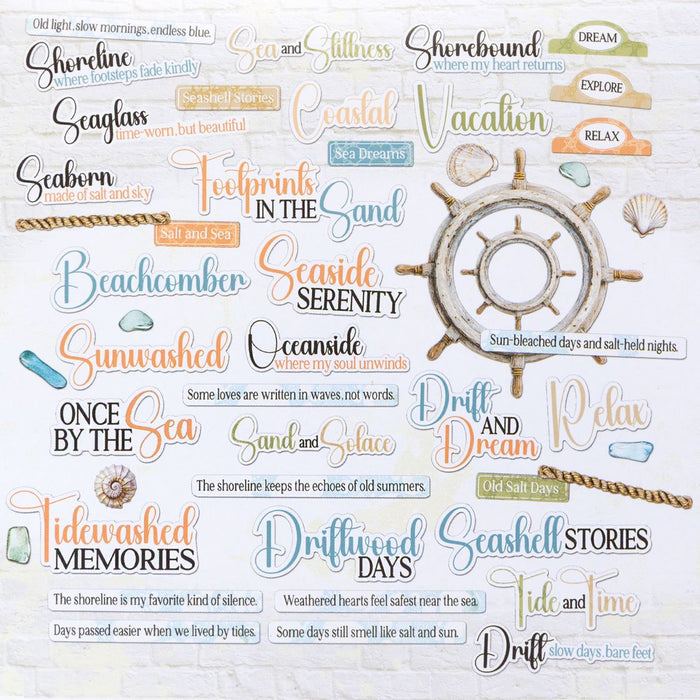 Old light, slow mornings, endless blue.
Shoreline
where footsteps fade kindly
Sea and Stillness
Shorebound
where my heart returns
DREAM
Seaglass
time-worn, but beautiful
Seashell Stories
Coastal
Vacation
EXPLORE
RELAX
Sea Dreams
Seaborn
made of salt and sky
Footprints
IN THE Sand
Salt and Sea
Beachcomber
Seaside
SERENITY
Sun-bleached days and salt-held nights.
Sunwashed
Oceanside
where my soul unwinds
Some loves are written in waves, not words.
ONCE
BY THE Sea
Sand and Solace
Drift
AND
Dream
Relax
The shoreline keeps the echoes of old summers.
Old Salt Days
Tidewashed
MEMORIES
Driftwood
DAYS
Seashell STORIES
The shoreline is my favorite kind of silence.
Weathered hearts feel safest near the sea.
Tide and Time
Days passed easier when we lived by tides.
Some days still smell like salt and sun.
Drift
slow days, bare feet